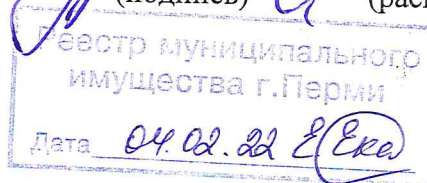 (подпись) (рас
Реестр муниципального
имущества г.Перми
Дата 04.02.22